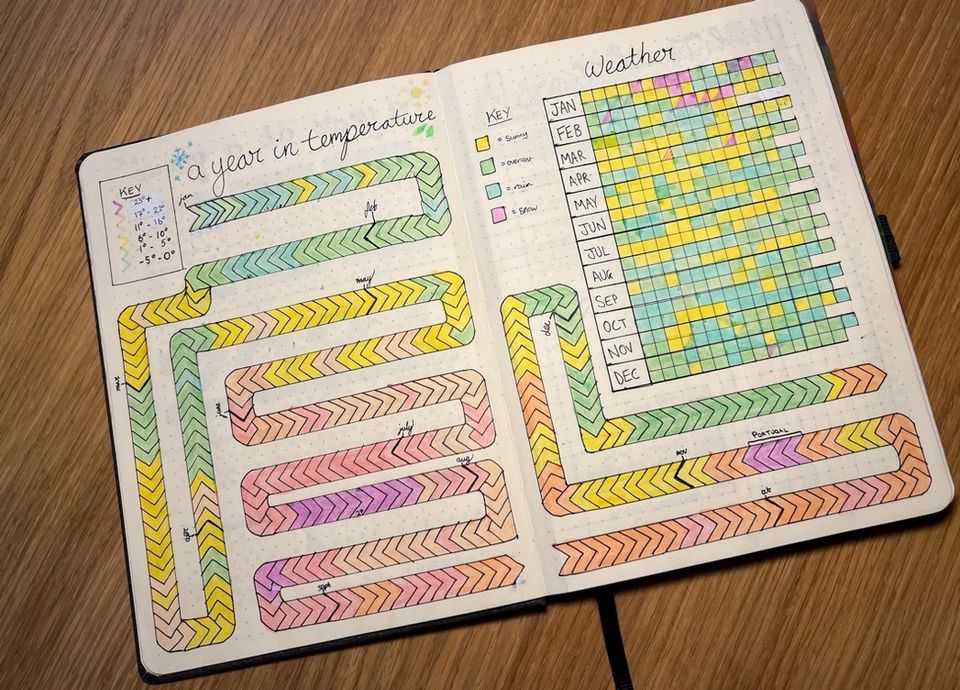 a year in temperature
KEY
23°+
17° - 22°
11° - 16°
6° - 10°
1° - 5°
-5° - 0°
jan
feb
mar
apr
may
june
july
aug
sept
Weather
KEY
= sunny
= overcast
= rain
= snow
JAN
FEB
MAR
APR
MAY
JUN
JUL
AUG
SEP
OCT
NOV
DEC
dec
nov
PORTUGAL
oct